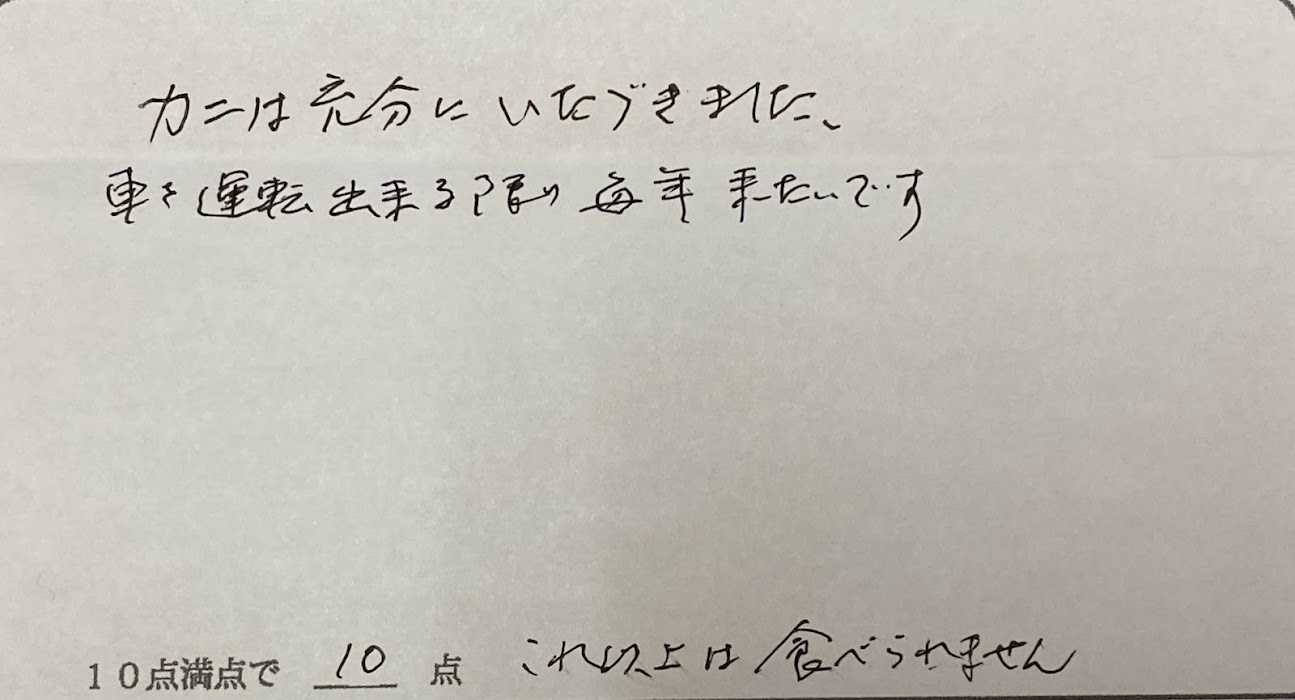 カニは充分にいただきました、
車を運転出来る限り毎年来たいです
10点満点で 10 点 これ以上は食べられません